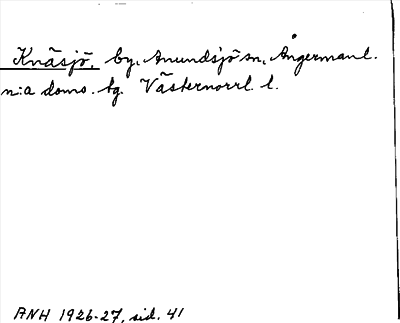 Knäsjö, by, Anundsjö sn, Ångermanl.
n:a doms. tg. Västernorrl. l.
ANH 1926-27, sid. 41